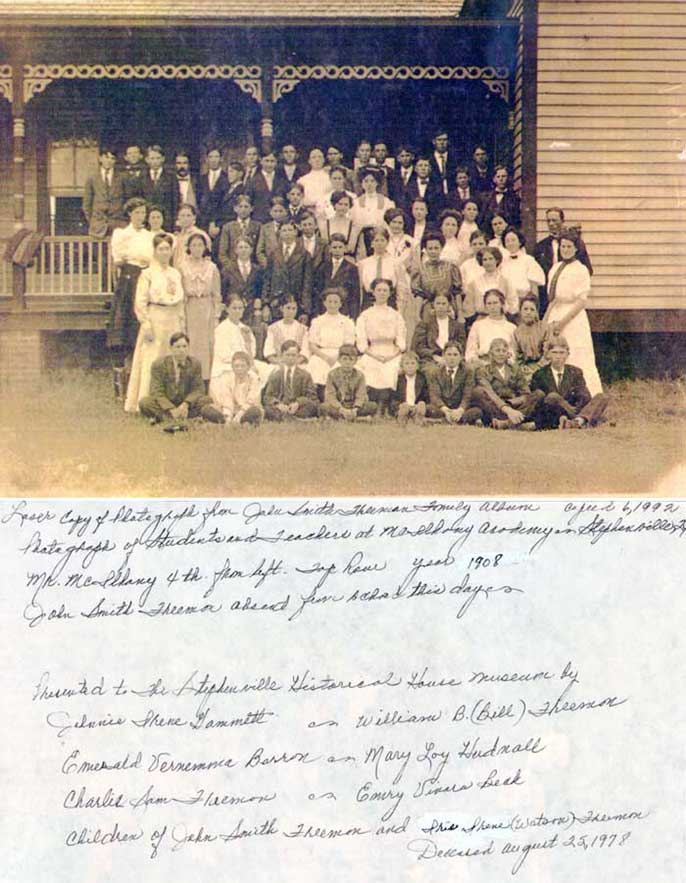 Laser Copy of Photograph from John Smith Freeman Family Album April 6, 1992
Photograph of Students and Teachers at McIlhany Academy in Stephenville,
Mr. McIlhany 4th. from left. Top Row year 1908
John Smith Freemon absent from school this day
Presented to the Stephenville Historical House Museum by
Jennie Irene Hammett William B. (Bill) Freemon
Emerald Vernemma Barron Mary Loy Hudnall
Charlie Sam Freemon Emry Vinara Beak
Children of John Smith Freemon and Iris Irene (Watson) Freemon
Deceased August 25, 1978